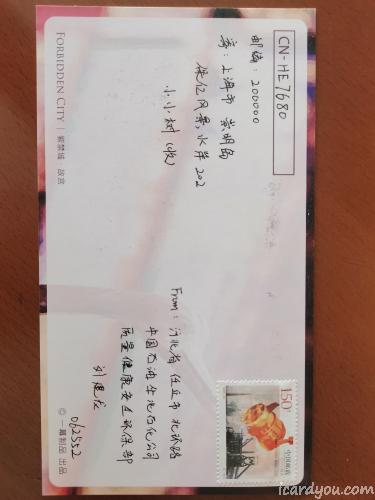 CN-HE7680
邮编：200000
寄：上海市 崇明岛
保亿风景水岸202
小小树（收）
From：河北省 任丘市 北环路
中国石油华北石化公司
质量健康安全环保部
062552
FORBIDDEN CITY | 紫禁城 故宫
© 一幕制品 出品
150
中国邮政
icardyou.com